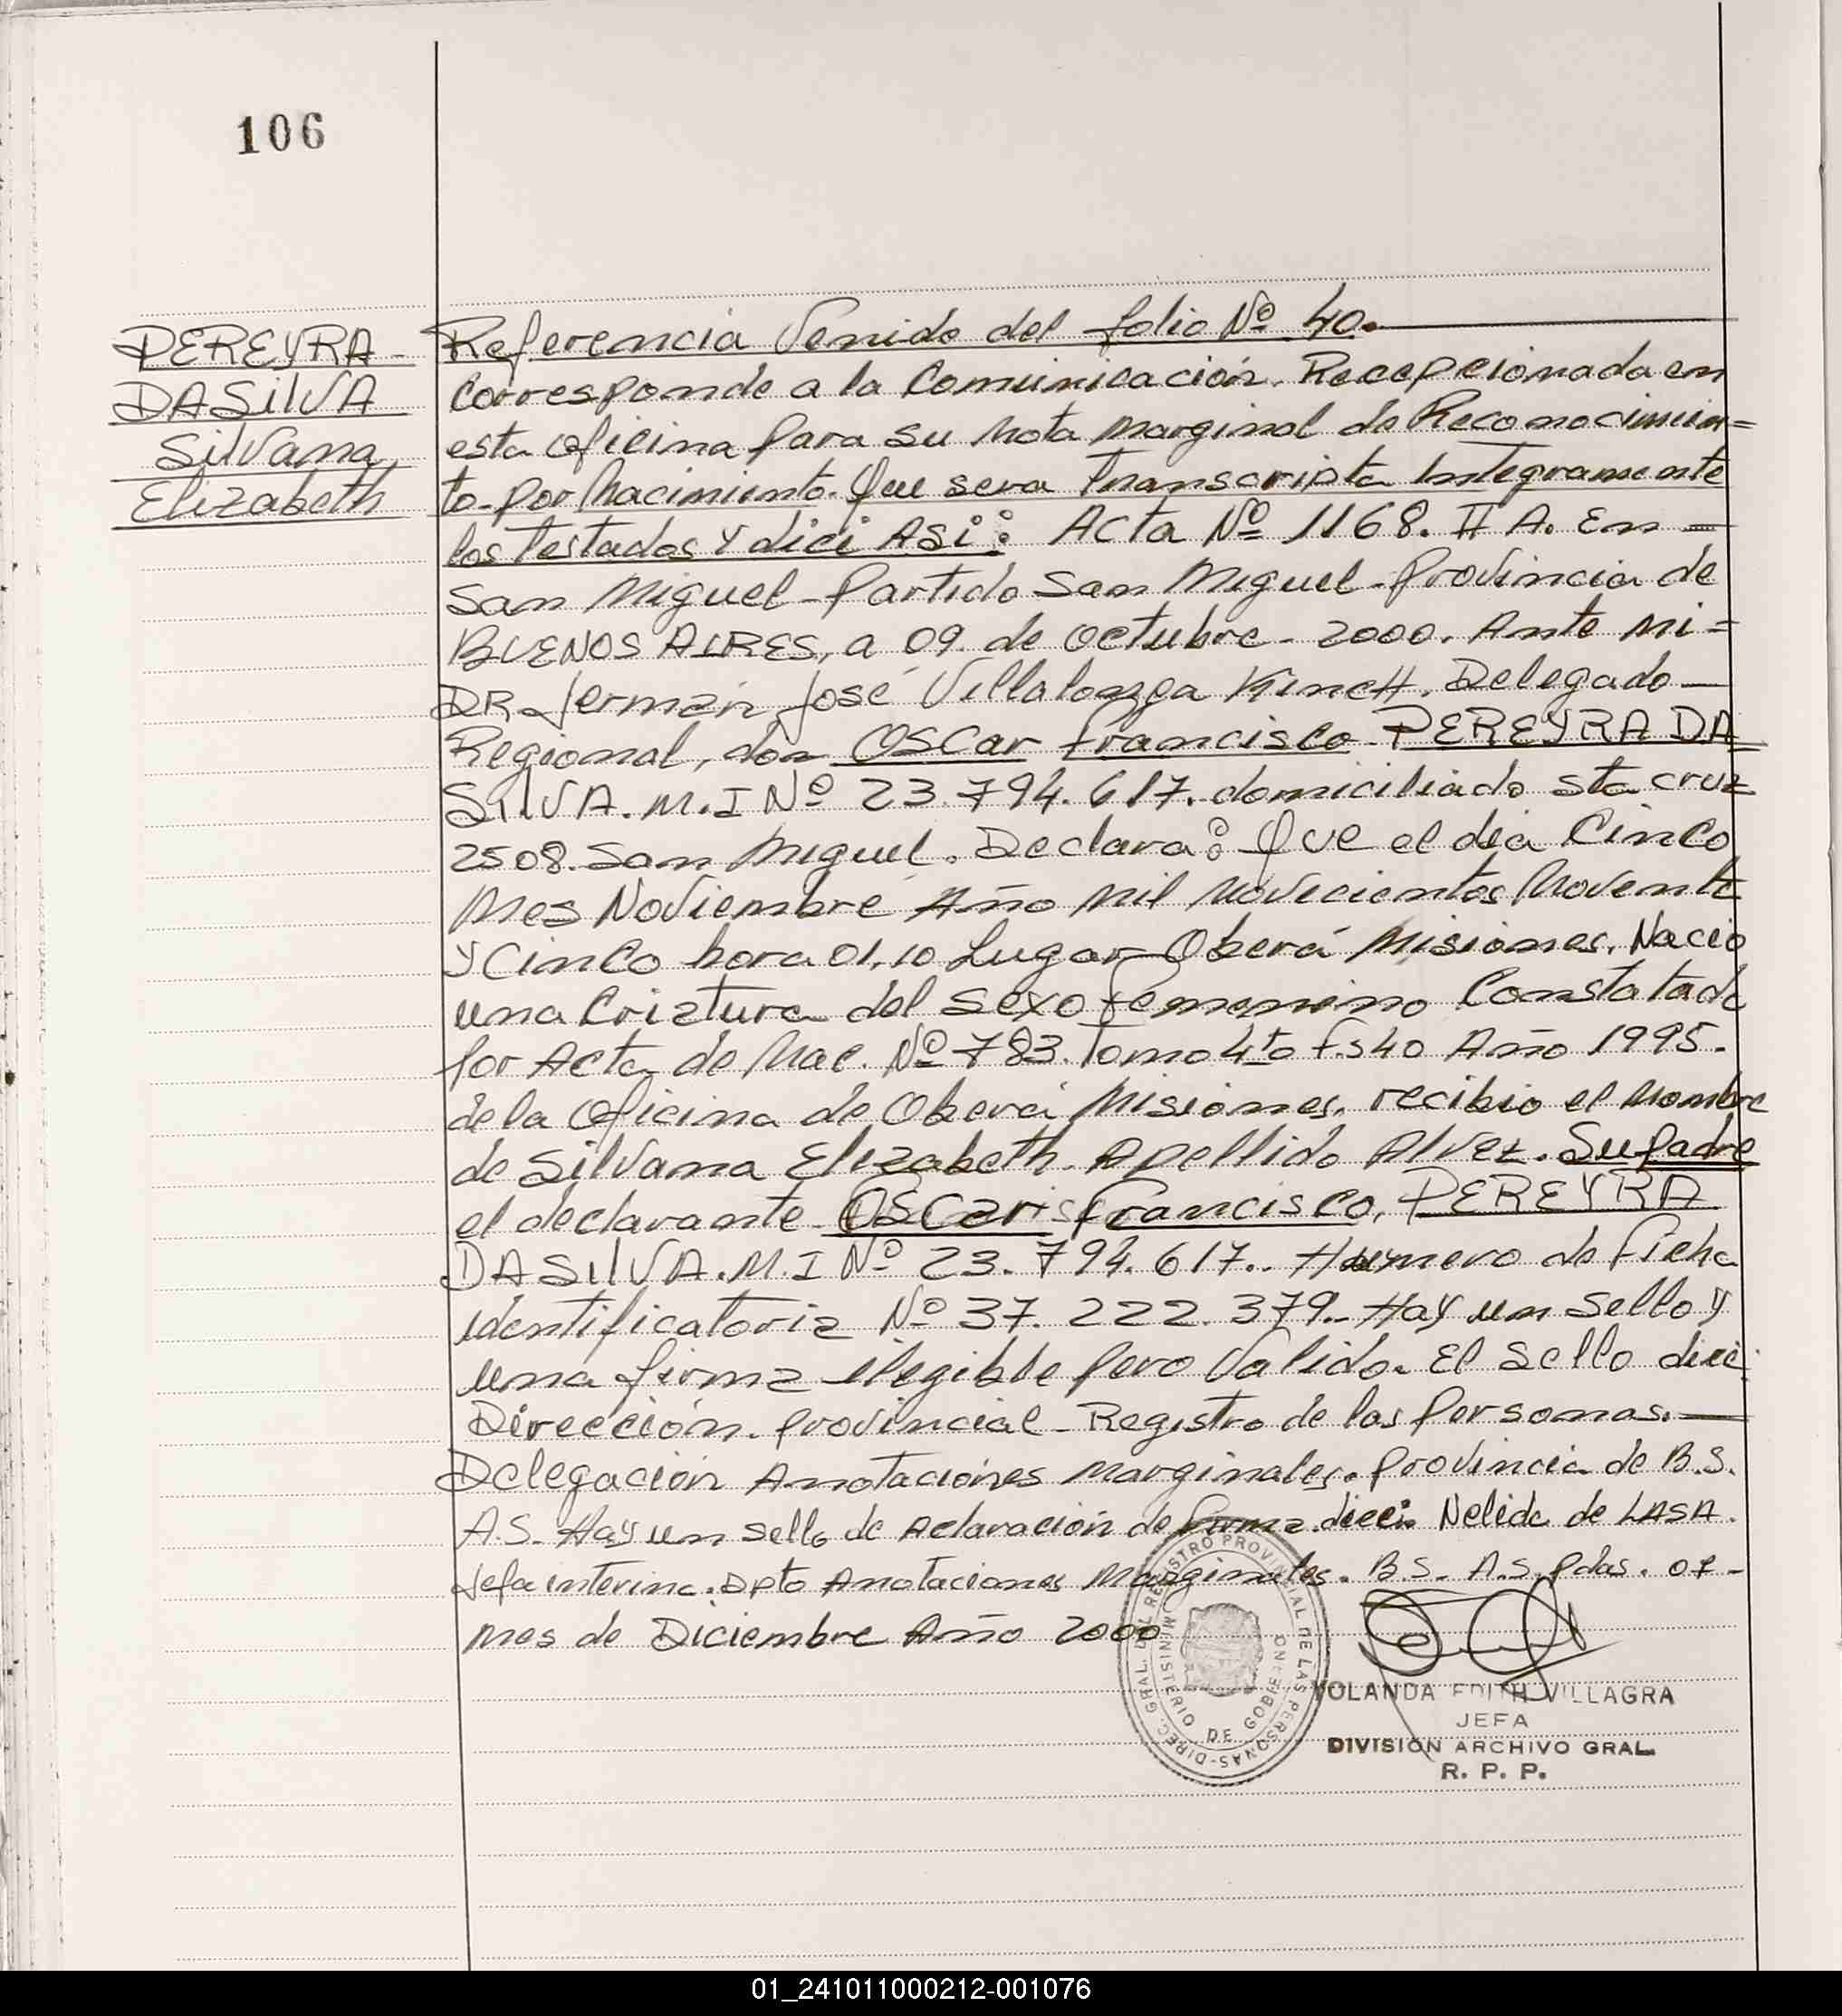 106
PEREYRA
DASilVA
Silvana
Elizabeth
Referencia Venido del folio Nº 40.
Corresponde a la Comunicación. Recepcionada en
esta oficina para su Nota Marginal de Reconocimien=
to-por Nacimiento. Que sera Transcripta Integramente
los Testados Y dici ASi: Acta Nº 1168. II A. En =
San Miguel - Partido San Miguel - Provincia de
BUENOS AIRES, a 09. de octubre - 2000. Ante Mi =
DR. José Kinch. Delegado
Regional, don OSCar francisco PEREYRA DA
SILVA. M.I Nº 23.794.617. domiciliado Sta cruz
2508. San Miguel. Declara: Que el dia Cinco
Mes Noviembre Año Mil Novecientos Noventa
Y Cinco hora 01,10 Lugar Oberá Misiones. Nacio
una Criatura del Sexo femenino Constatado
por Acta de Nac. Nº 783. Tomo 4to Año 1995.
de la oficina de Oberá Misiones. recibio el Nombre
de Silvana Elizabeth. Apellido Alvez. Su padre
el declarante OSCar francisco, PEREYRA
DA SilVA. M.I Nº 23.794.617.. Numero de ficha
identificatoria Nº 37.222.379.- Hay un Sello y
una firma ilegible pero Valido. El Sello dice:
Dirección. provincial - Registro de las personas.
Delegación Anotaciones Marginales. provincia de B.S.
A.S. Hay un sello de Aclaración de firma. dice: Nelida de LASA.
Jefa interina. Dpto Anotaciones Marginales. B.S. A.S.
mes de Diciembre Año 2000
DIREC. GRAL. DEL REGISTRO PROVINCIAL DE LAS PERSONAS
MINISTERIO DE GOBIERNO
YOLANDA EDITH VILLAGRA
JEFA
DIVISIÓN ARCHIVO GRAL.
R. P. P.
01_241011000212-001076